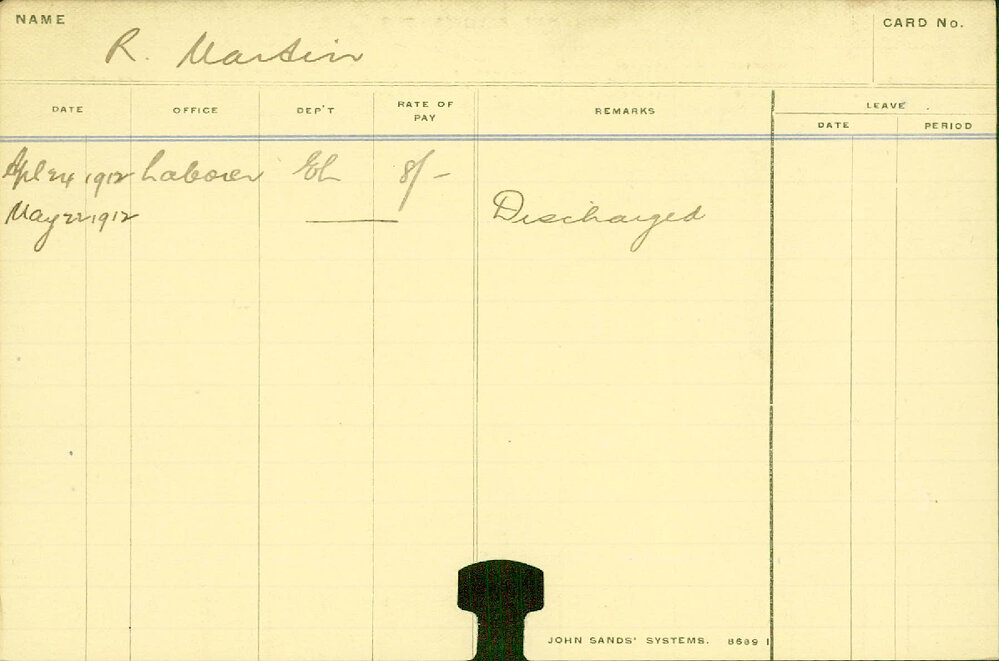 NAME
R. Martin
CARD No.
DATE OFFICE DEP'T RATE OF PAY REMARKS LEAVE
DATE PERIOD
Apl 24 1912 Laborer EL 8/-
May 22 1912 Discharged
JOHN SANDS' SYSTEMS. 8689 1